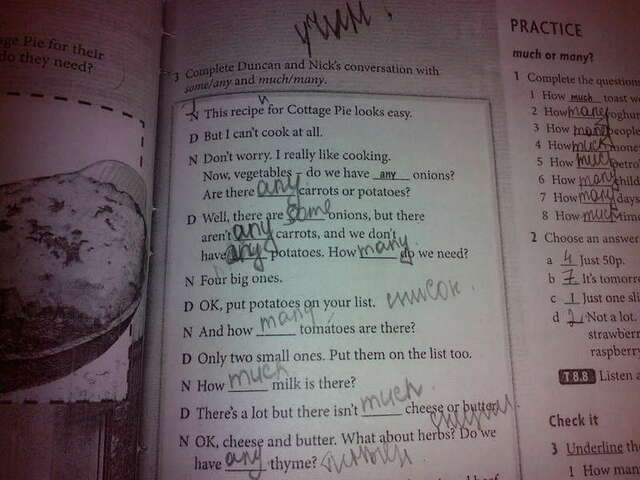 ge Pie for their
do they need?
3 Complete Duncan and Nick's conversation with
some/any and much/many.
N This recipe for Cottage Pie looks easy.
D But I can't cook at all.
N Don't worry. I really like cooking.
Now, vegetables – do we have any onions?
Are there any carrots or potatoes?
D Well, there are some onions, but there
aren't any carrots, and we don't
have any potatoes. How many do we need?
N Four big ones.
D OK, put potatoes on your list. список.
N And how many tomatoes are there?
D Only two small ones. Put them on the list too.
N How much milk is there?
D There's a lot but there isn't much cheese or butter.
N OK, cheese and butter. What about herbs? Do we
have any thyme?
PRACTICE
much or many?
1 Complete the question
1 How much toast
2 How many yoghur
3 How many people
4 How much money
5 How much petro
6 How many child
7 How many days
8 How much time
2 Choose an answer
a 4 Just 50p.
b 7 It's tomorro
c 1 Just one sli
d 2 Not a lot.
strawberr
raspberry
T 8.8 Listen a
Check it
3 Underline th
1 How man